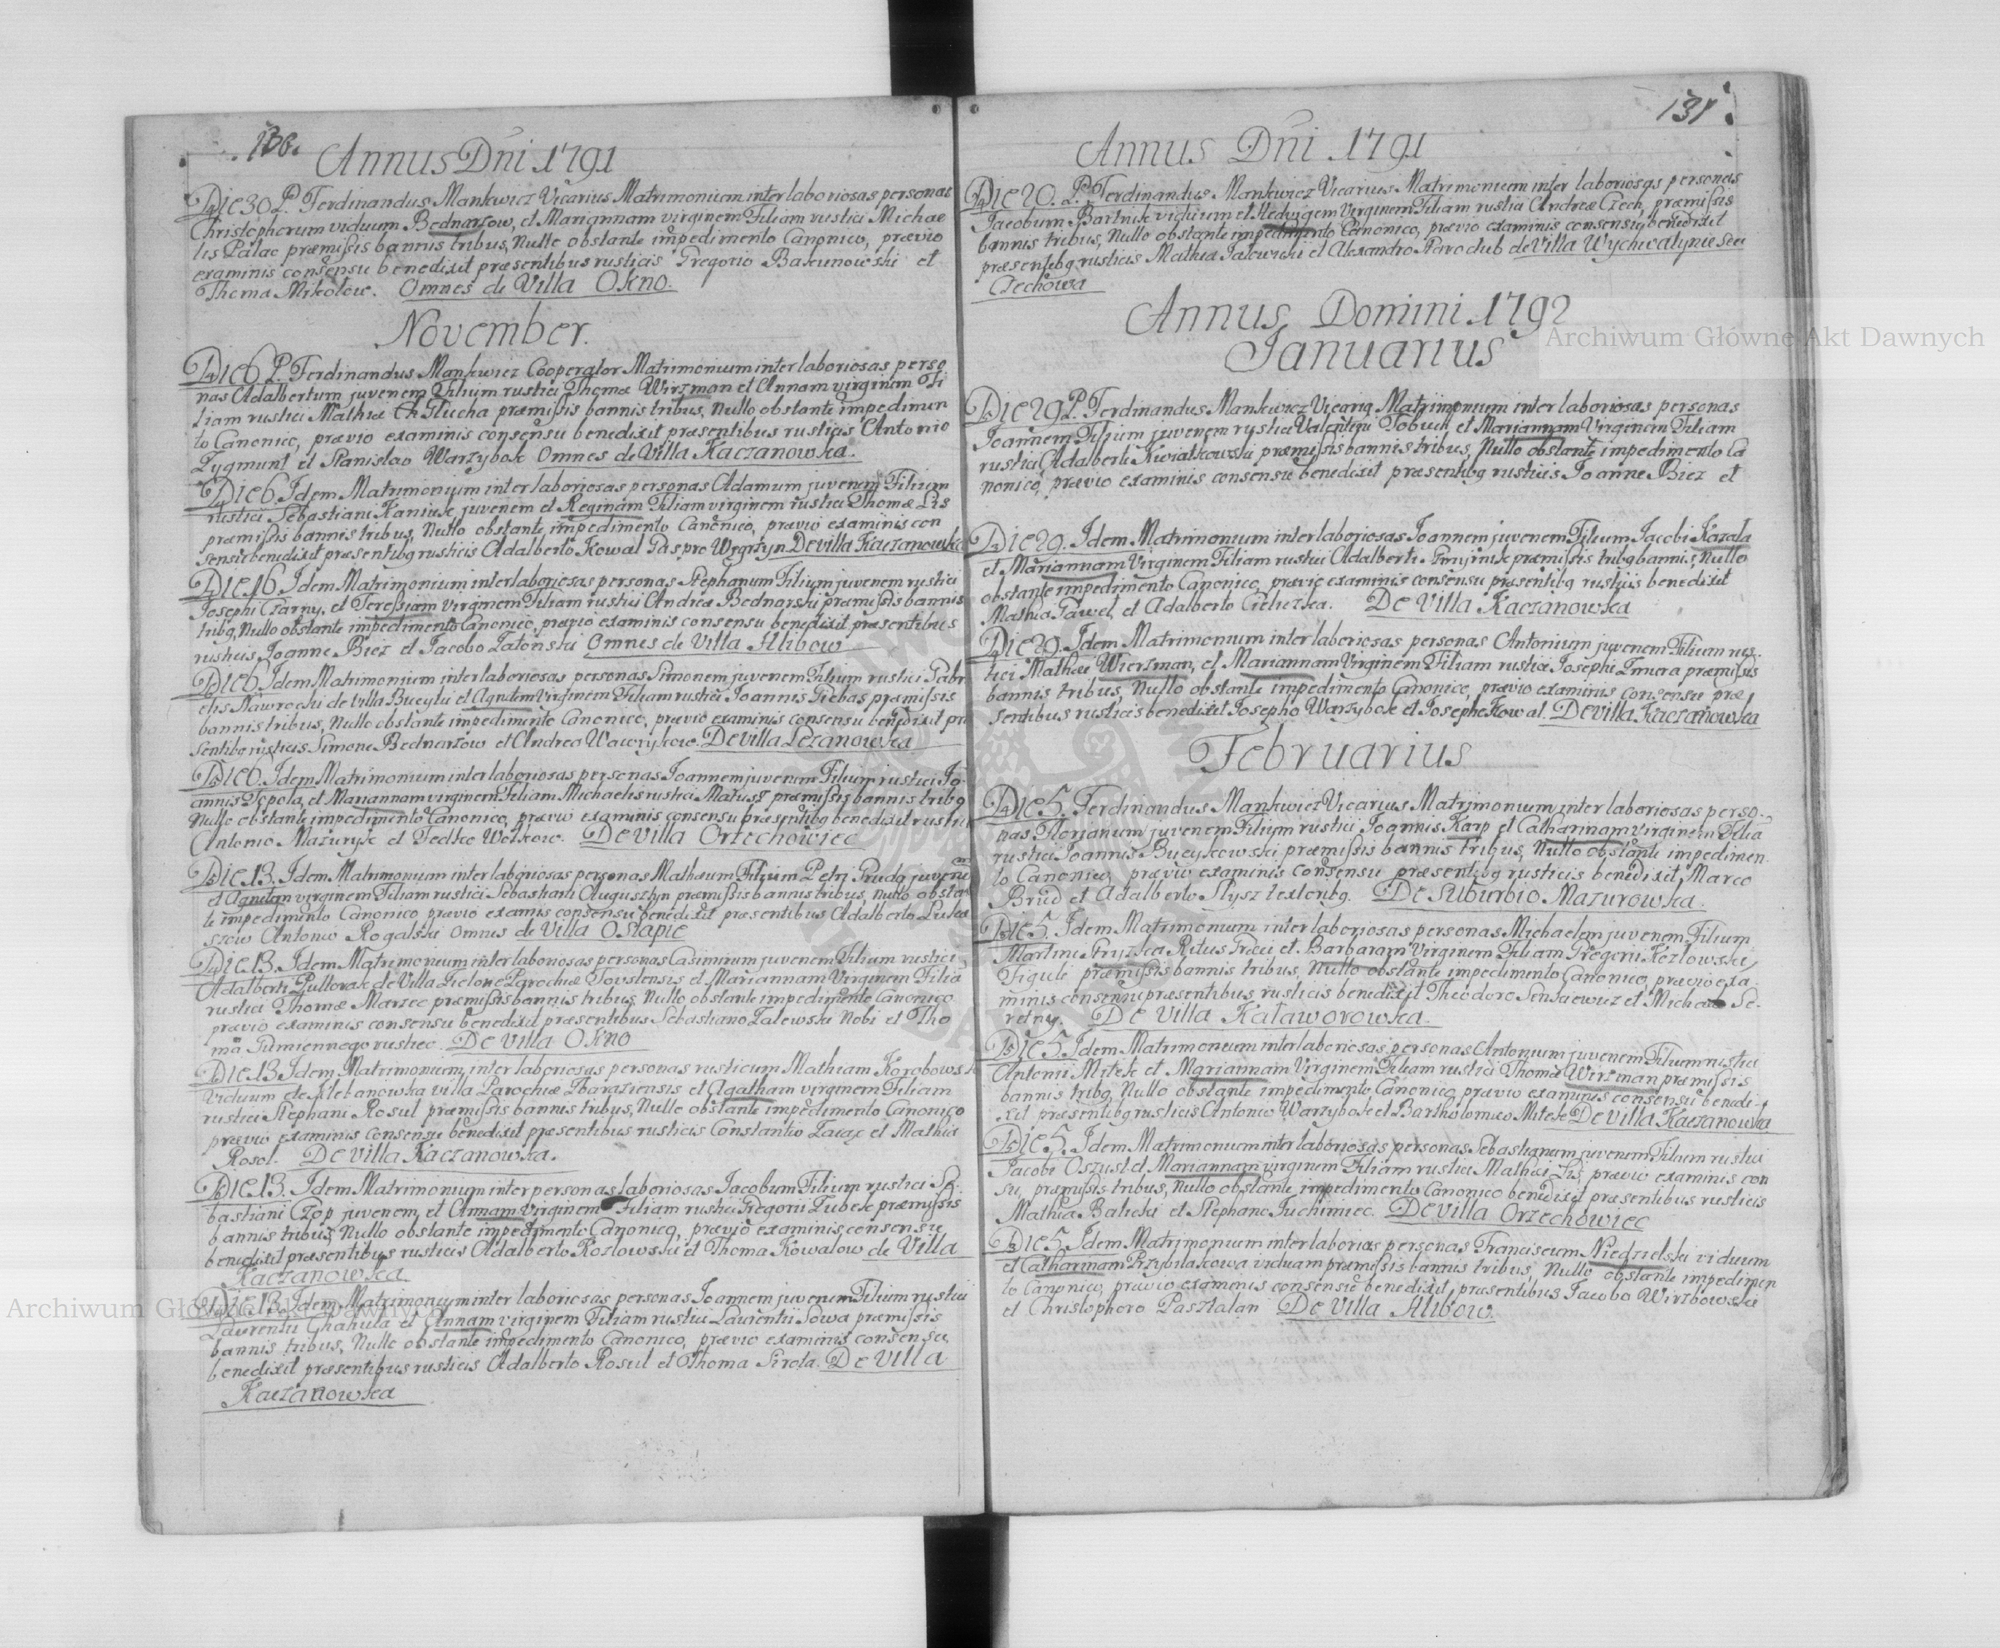 130.
Annus Dni 1791
Die 30 P. Ferdinandus Mankwicz Vicarius Matrimonium inter laboriosas personas
Christophorum viduum Bednarzow, et Mariannam virginem Filiam rustici Michae
lis Palac præmissis bannis tribus, Nullo obstante impedimento Canonico, prævio
examinis consensu benedixit præsentibus rusticis Gregorio Bakunowski et
Thoma Mikolow. Omnes de Villa Okno.
November.
Die 6 P. Ferdinandus Mankwicz Cooperator Matrimonium inter laboriosas perso
nas Adalbertum juvenem Filium rustici Thomæ Wirzman et Annam virginem Fi
liam rustici Mathiæ Głucha præmissis bannis tribus, Nullo obstante impedimen
to Canonico, prævio examinis consensu benedixit præsentibus rusticis Antonio
Zygmunt et Stanislao Warzybok Omnes de Villa Kaczanowka.
Die 6 Idem Matrimonium inter laboriosas personas Adamum juvenem Filium
rustici Sebastiani Kaniuk juvenem et Reginam Filiam virginem rustici Thomæ Lis
præmissis bannis tribus, Nullo obstante impedimento Canonico, prævio examinis con
sensu benedixit præsentibq rusticis Adalberto Kowal Gaspro Węgrzyn De villa Kaczanowka
Die 16 Idem Matrimonium inter laboriosas personas Stephanum Filium juvenem rustici
Josephi Czarny, et Teressiam virginem Filiam rustici Andreæ Bednarski præmissis bannis
tribq, Nullo obstante impedimento Canonico, prævio examinis consensu benedixit præsentibus
rusticis Joanne Biez et Jacobo Zatonski Omnes de Villa Alibow
Die 6 Idem Matrimonium inter laboriosas personas Simonem juvenem Filium rustici Gabri
elis Nawrocki de Villa Bucyki et Agnetem Virginem Filiam rustici Joannis Grebas præmissis
bannis tribus, Nullo obstante impedimento Canonico, prævio examinis consensu benedixit præ
sentibq rusticis Simone Bednarzow et Andrea Wawrykow. De Villa Lezanowka
Die 6. Idem Matrimonium inter laboriosas personas Joannem juvenem Filium rustici Jo
annis Topola, et Mariannam virginem Filiam Michaelis rustici Matusz præmissis bannis tribq
Nullo obstante impedimento Canonico, prævio examinis consensu præsentibq benedixit rusticis
Antonio Mazuryk et Fedko Wolkow. De Villa Orzechowiec
Die 13. Idem Matrimonium inter laboriosas personas Mathæum Filium Petri Gruda juvenem
et Agnetem virginem Filiam rustici Sebastiani Augustyn præmissis bannis tribus, nullo obstan
te impedimento Canonico prævio examis consensu benedixit præsentibus Adalberto Luka
szow Antonio Rogalski omnes de Villa Ostapie
Die 13. Idem Matrimonium inter laboriosas personas Casimirum juvenem Filium rustici
Adalberti Pultorak de Villa Zielone Parochiæ Tovstensis et Mariannam Virginem Filia
rustici Thomæ Marzec præmissis bannis tribus, Nullo obstante impedimento Canonico
prævio examinis consensu benedixit præsentibus Sebastiano Zalewski Nobi et Tho
ma Gumiennego rustico. De Villa Okno
Die 13 Idem Matrimonium inter laboriosas personas rusticum Mathiam Korobows
Viduum de Klebanowka villa Parochiæ Zbaraziensis et Agatham virginem Filiam
rustici Stephani Rosul præmissis bannis tribus, Nullo obstante impedimento Canonico
prævio examinis consensu benedixit præsentibus rusticis Constantio Zaiac et Mathia
Rosol. De Villa Kaczanowka.
Die 13. Idem Matrimonium inter personas laboriosas Jacobum Filium rustici Se
bastiani Czop juvenem, et Annam Virginem Filiam rustici Gregorii Zubek præmissis
bannis tribus, Nullo obstante impedimento Canonico, prævio examinis consensu
benedixit præsentibus rusticis Adalberto Kozlowski et Thoma Kowalow de Villa
Kaczanowka
Die 13. Idem Matrimonium inter laboriosas personas Joannem juvenem Filium rustici
Laurentii Chahula et Annam virginem Filiam rustici Laurentii Sowa præmissis
bannis tribus, Nullo obstante impedimento Canonico, prævio examinis consensu
benedixit præsentibus rusticis Adalberto Rosul et Thoma Sirota. De Villa
Kaczanowka
131.
Annus Dni 1791
Die 20. P. Ferdinandus Mankwicz Vicarius Matrimonium inter laboriosas personas
Jacobum Bartnik viduum et Hedvigem Virginem Filiam rustici Andreæ Czech, præmissis
bannis tribus, Nullo obstante impedimento Canonico, prævio examinis consensu benedixit
præsentibq rusticis Mathia Jalowicki et Alexandro de Villa Wychwatynie seu
Czechowa
Annus Domini 1792
Januarius
Die 29 P. Ferdinandus Mankwicz Vicariq Matrimonium inter laboriosas personas
Joannem Filium juvenem rustici Valentini Tobuch et Mariannam Virginem Filiam
rustici Adalberti Kwiatkowski præmissis bannis tribus, Nullo obstante impedimento Ca
nonico, prævio examinis consensu benedixit præsentibq rusticis Joanne Biez et
Die 29. Idem Matrimonium inter laboriosas Joannem juvenem Filium Jacobi Kazala
et Mariannam Virginem Filiam rustici Adalberti præmissis tribq bannis, Nullo
obstante impedimento Canonico, prævio examinis consensu præsentibq rusticis benedixit
Mathia Gaweł, et Adalberto Cieluzka. De Villa Kaczanowka
Die 29. Idem Matrimonium inter laboriosas personas Antonium juvenem Filium rus.
tici Mathæi Wierzman, et Mariannam Virginem Filiam rustici Josephi Zmura præmissis
bannis tribus, Nullo obstante impedimento Canonico, prævio examinis consensu præ
sentibus rusticis benedixit Josepho Warzybok et Josepho Kowal. De Villa Kaczanowka
Februarius
Die 5. Ferdinandus Mankwicz Vicarius Matrimonium inter laboriosas perso.
nas Florianum juvenem Filium rustici Joannis Karp et Catharinam virginem Filia
rustici Joannis Bucykowski præmissis bannis tribus, Nullo obstante impedimen.
to Canonico, prævio examinis consensu præsentibq rusticis benedixit Marco
Brud et Adalberto Slysz textoribq. De Suburbio Mazurowka.
Die 5. Idem Matrimonium inter laboriosas personas Michaelem juvenem Filium
Martini Fryzka Ritus Græci et Barbaram Virginem Filiam Gregorii Kozlowski
Figuli præmissis bannis tribus, Nullo obstante impedimento Canonico, prævio exa.
minis consensu præsentibus rusticis benedixit Theodoro Senkiewicz et Michale Se.
retny. De Villa Kalaworowka.
Die 5. Idem Matrimonium inter laboriosas personas Antonium juvenem Filium rustici
Antonii Mitek et Mariannam Virginem Filiam rustici Thomæ Wirzman præmissis
bannis tribq, Nullo obstante impedimento Canonico, prævio examinis consensu benedi-
xit præsentibq rusticis Antonio Warzybok et Bartholomæo Mitek De Villa Kaczanowka
Die 5. Idem Matrimonium inter laboriosas personas Sebastianum juvenem Filium rustici
Jacobi Oszust et Mariannam virginem Filiam rustici Mathæi Lis, prævio examinis con
su, præmissis tribus, Nullo obstante impedimento Canonico benedixit præsentibus rusticis
Mathia Balicki et Stephano Juchimiec. De Villa Orzechowiec
Die 5. Idem Matrimonium inter laborias personas Franciscum Niedzielski viduum
et Catharinam Przybilakowa viduam præmissis bannis tribus, Nullo obstante impedimen
to Canonico, prævio examenis consensu benedixit, præsentibus Jacobo Wirzbowski
et Christophoro Pasztalan De Villa Alibow.
Archiwum Główne Akt Dawnych
Archiwum Główne Akt Dawnych